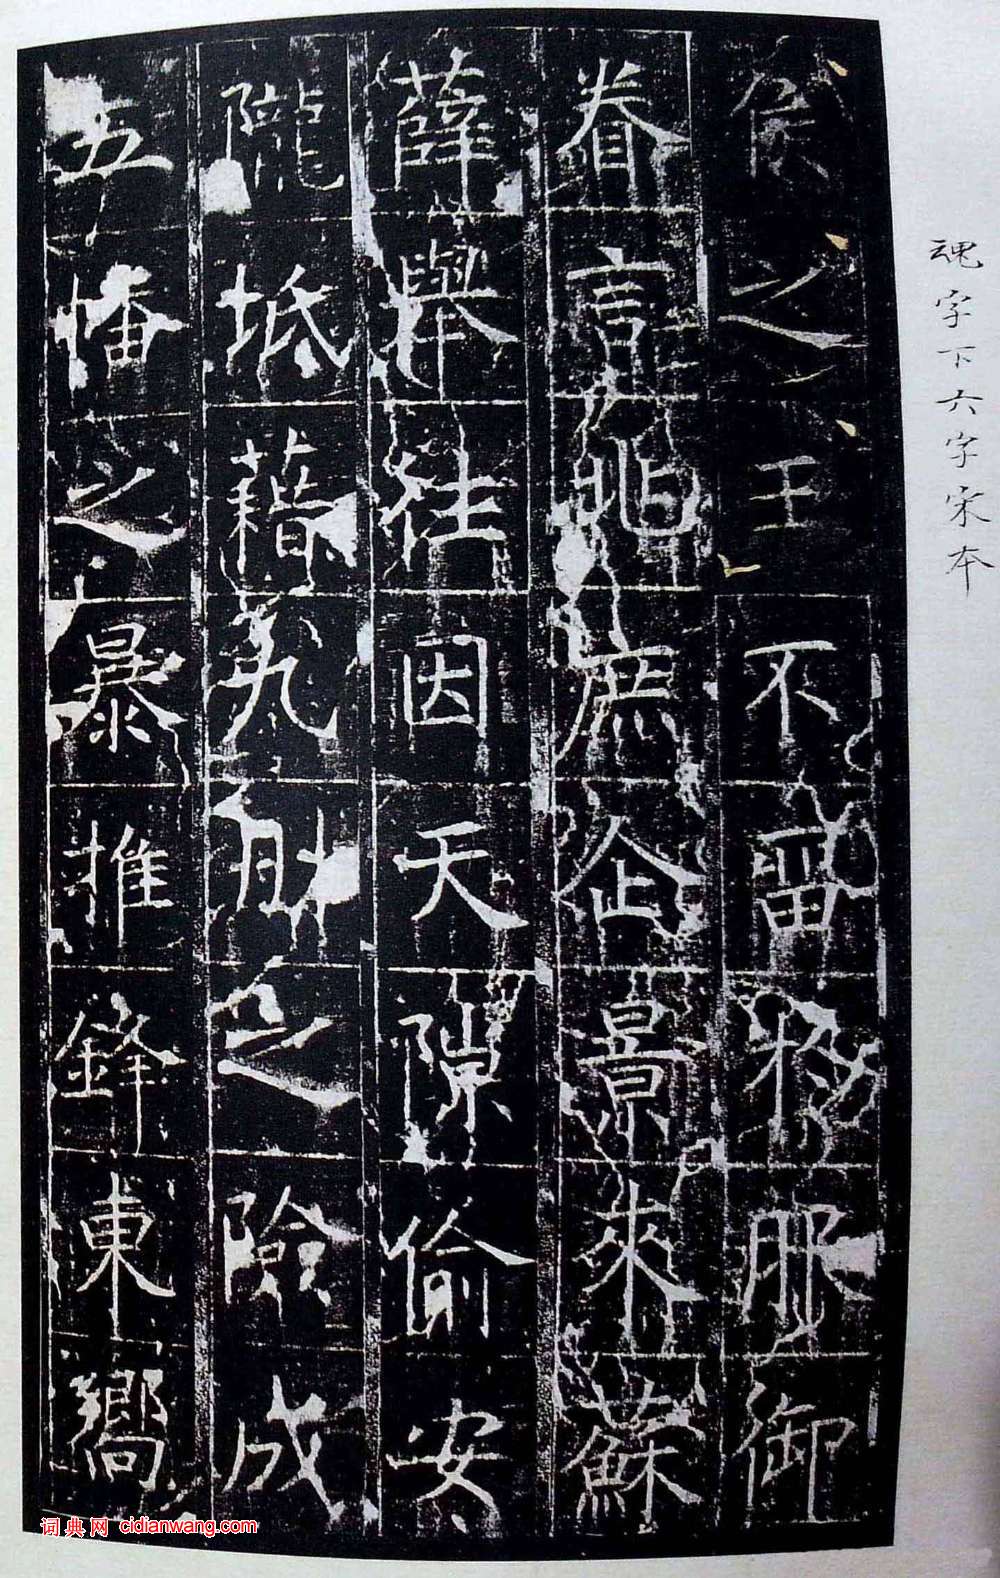 魂字下六字宋本
侯之王不畱於服御
眷言兆庶企景來蘇
薛舉往因天隙偷安
隴坻藉九肘之險成
五幡之暴推鋒東嚮
词典网 cidianwang.com